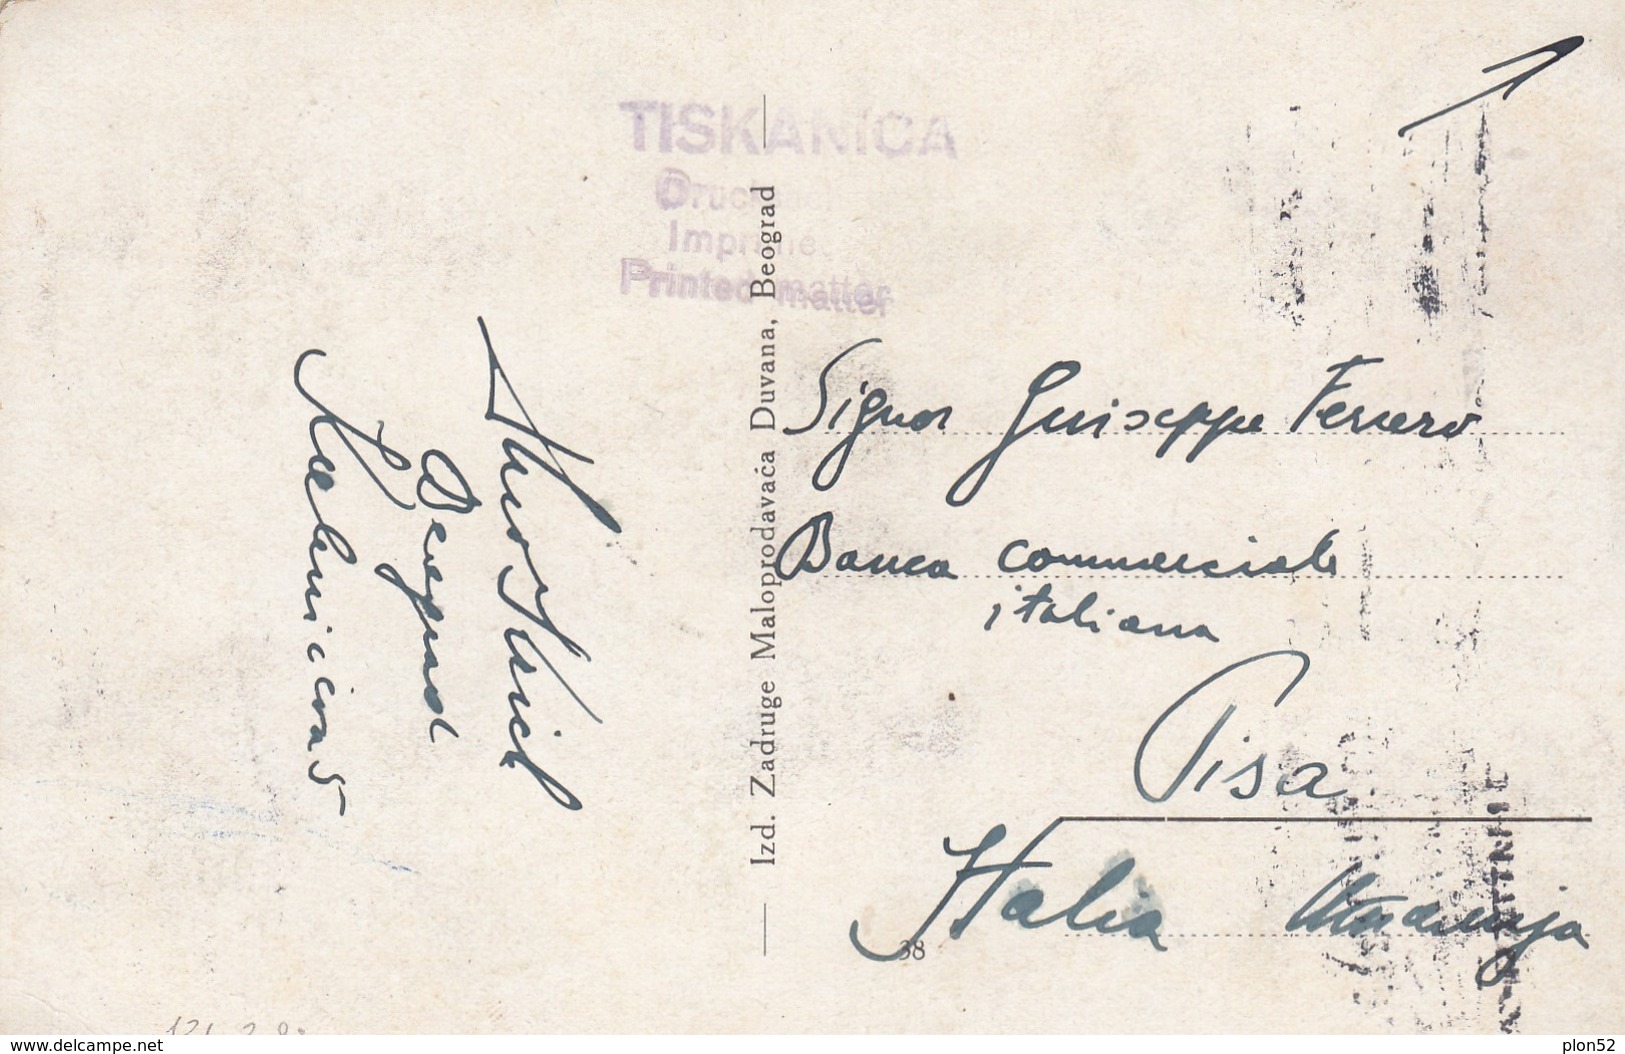 TISKANICA
Drucksache
Imprimé
Printed matter
Izd. Zadruge Maloprodavaća Duvana, Beograd
Beograd
Signor Guiseppe Ferrero
Banca commerciale
italiana
Pisa
Italia
38
www.delcampe.net
plon52